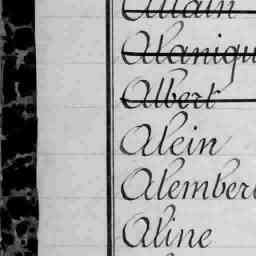 Allain
Alaniqu
Albert
Alein
Alember
Aline